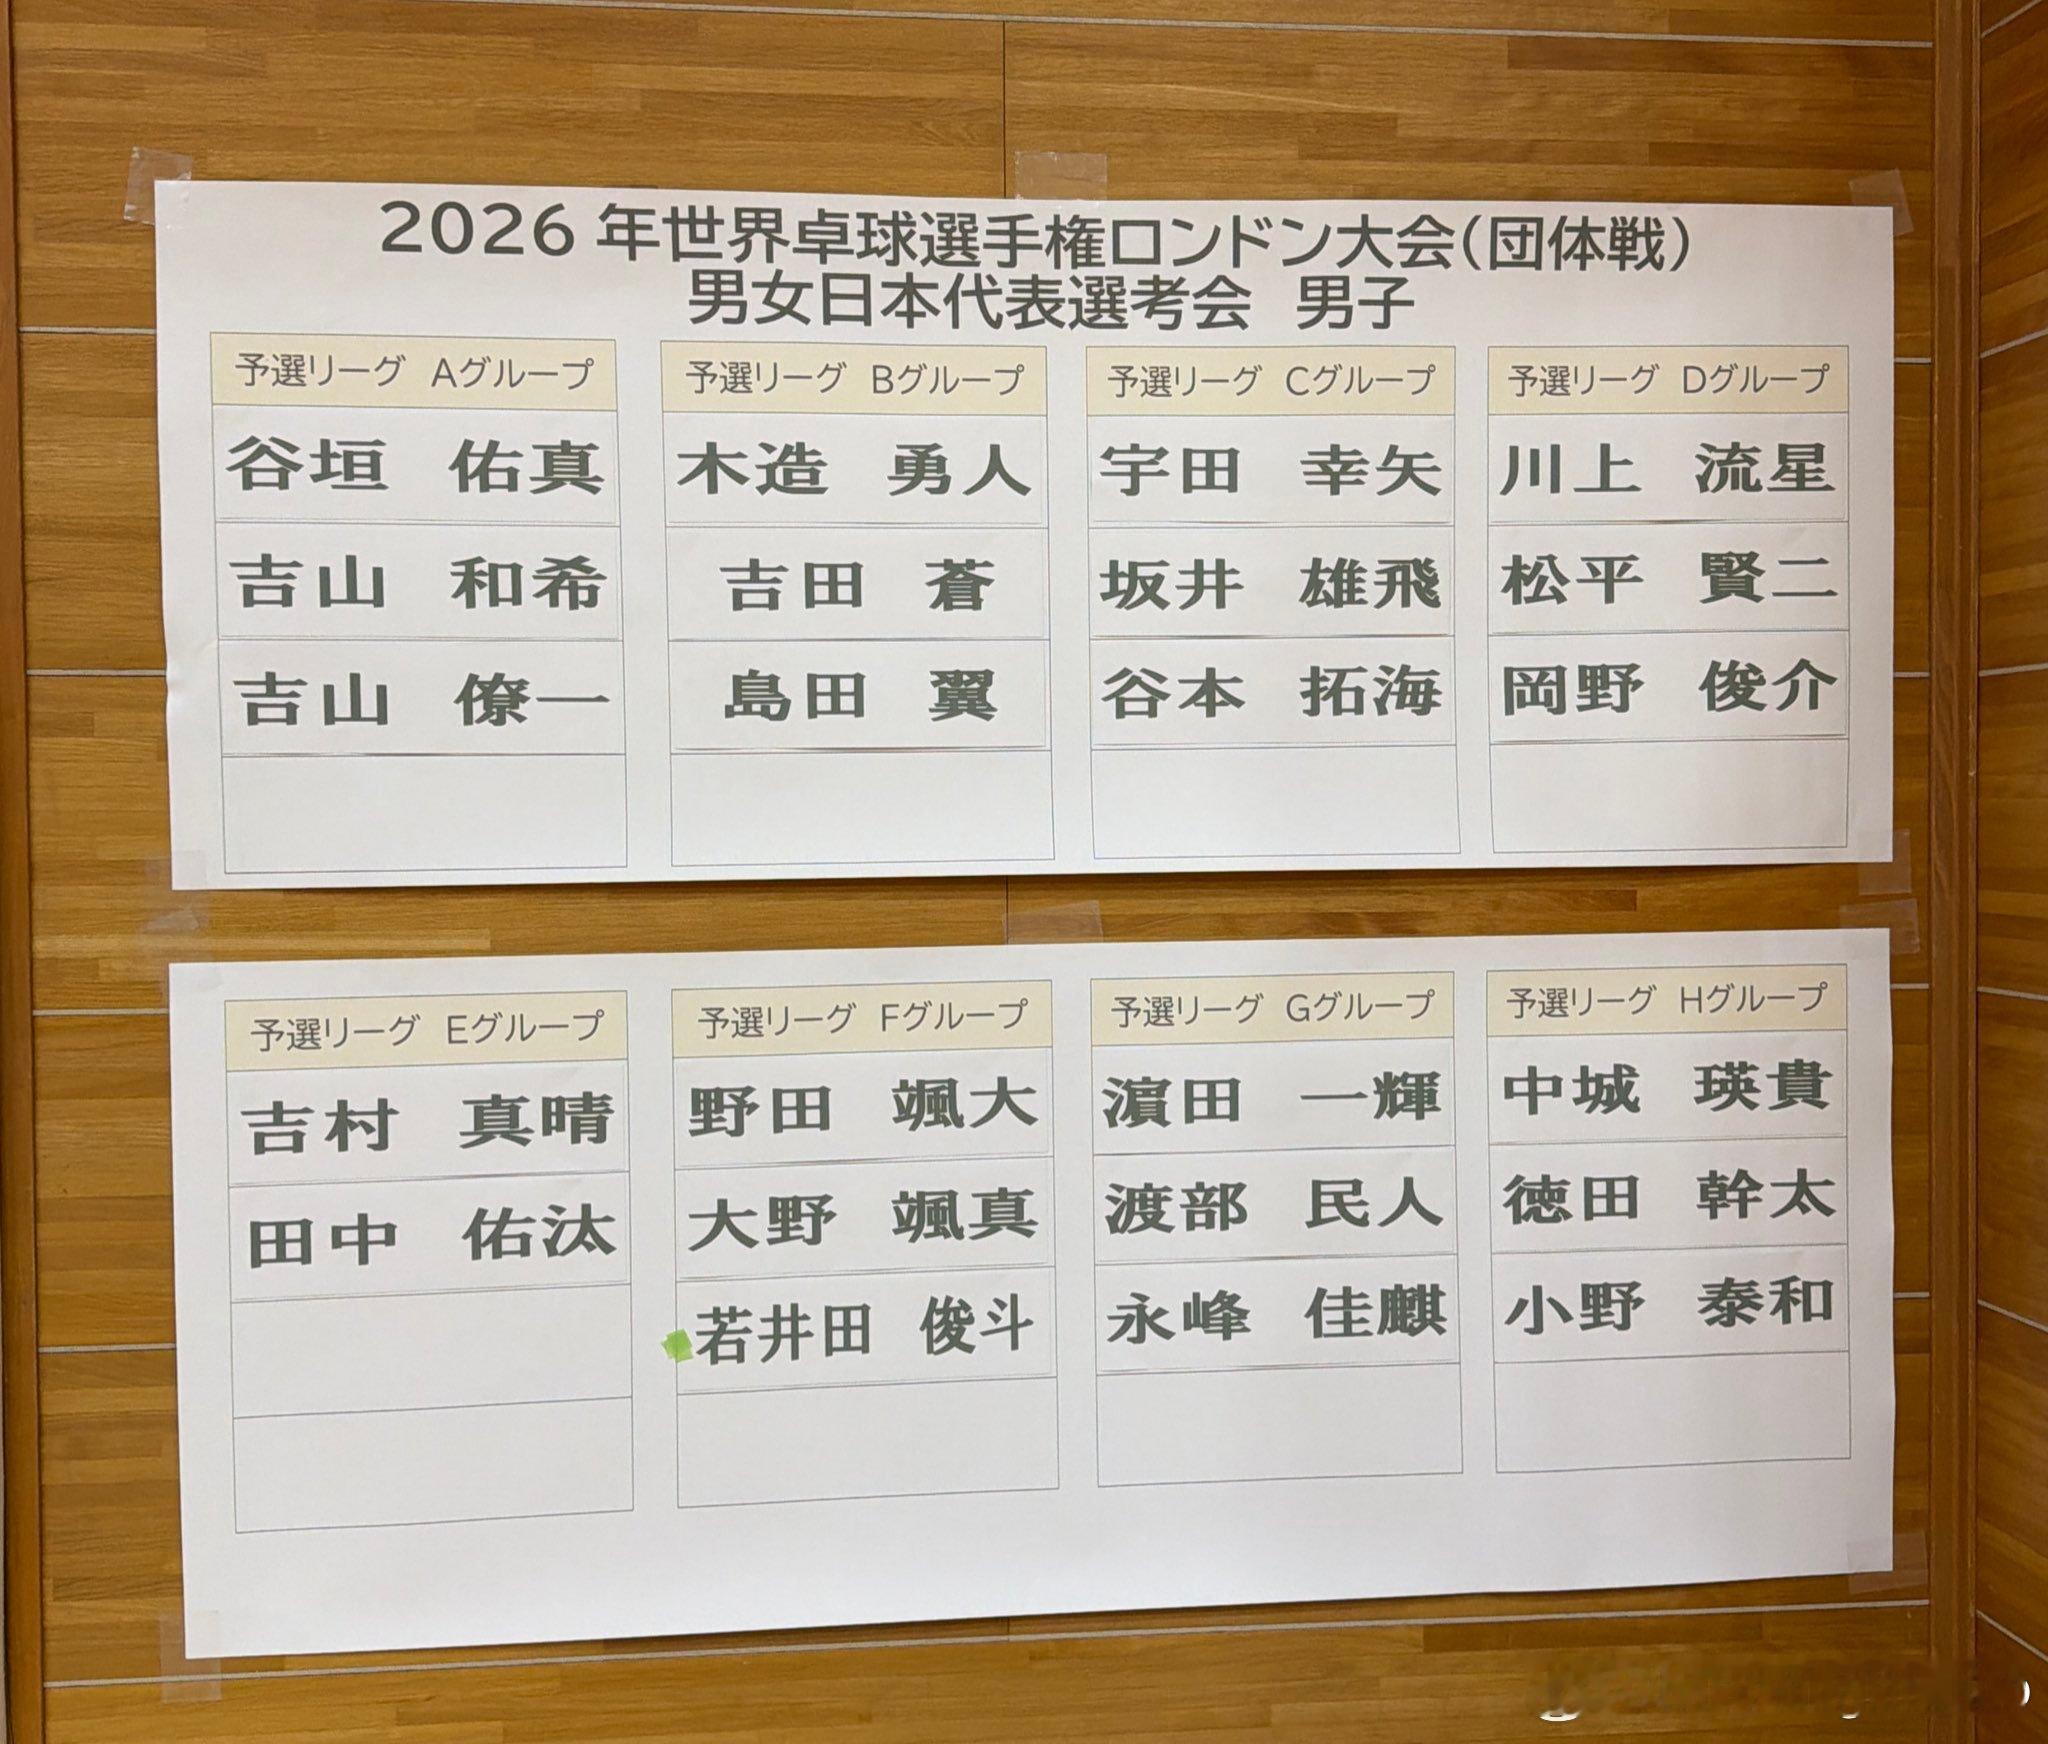 2026年世界卓球選手権ロンドン大会（団体戦）
男女日本代表選考会　男子
予選リーグ　Aグループ
谷垣　佑真
吉山　和希
吉山　僚一
予選リーグ　Bグループ
木造　勇人
吉田　蒼
島田　翼
予選リーグ　Cグループ
宇田　幸矢
坂井　雄飛
谷本　拓海
予選リーグ　Dグループ
川上　流星
松平　賢二
岡野　俊介
予選リーグ　Eグループ
吉村　真晴
田中　佑汰
予選リーグ　Fグループ
野田　颯太
大野　颯真
若井田　俊斗
予選リーグ　Gグループ
濵田　一輝
渡部　民人
永峰　佳麒
予選リーグ　Hグループ
中城　瑛貴
徳田　幹太
小野　泰和